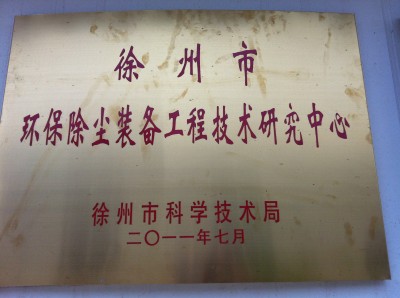 徐州市
环保除尘装备工程技术研究中心
徐州市科学技术局
二〇一一年七月